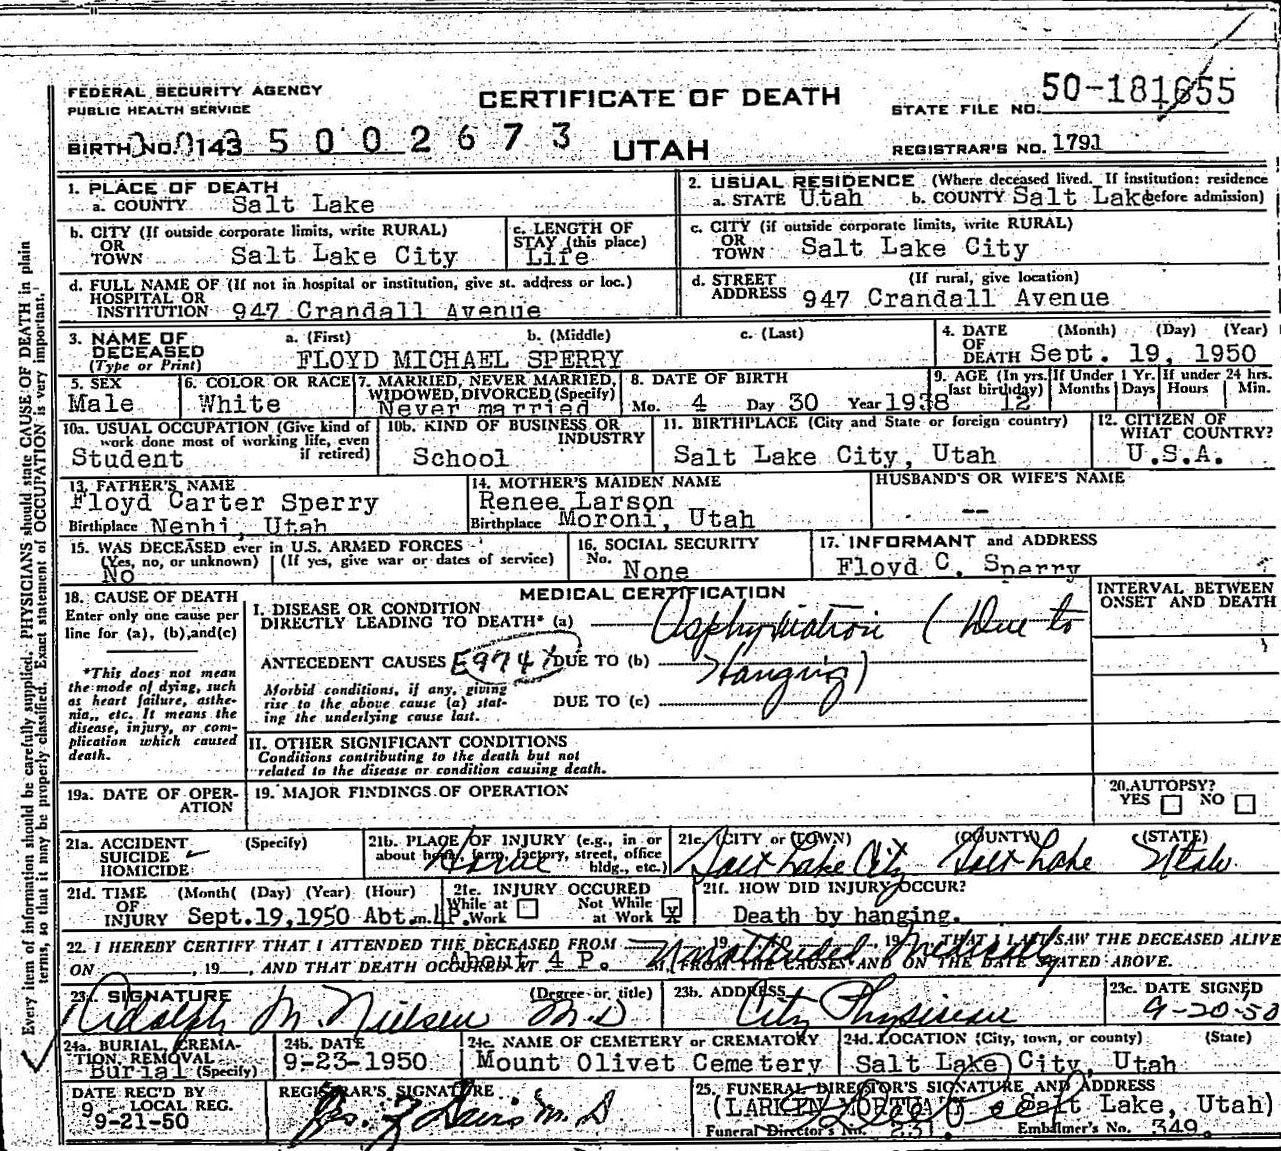 FEDERAL SECURITY AGENCY
PUBLIC HEALTH SERVICE
CERTIFICATE OF DEATH
STATE FILE NO. 50-181655
BIRTH NO. 0143 5 0 0 2 6 7 3
UTAH
REGISTRAR'S NO. 1791
1. PLACE OF DEATH
a. COUNTY Salt Lake
2. USUAL RESIDENCE (Where deceased lived. If institution: residence
a. STATE Utah b. COUNTY Salt Lake before admission)
b. CITY (If outside corporate limits, write RURAL)
OR
TOWN Salt Lake City
c. LENGTH OF
STAY (this place)
Life
c. CITY (if outside corporate limits, write RURAL)
OR
TOWN Salt Lake City
d. FULL NAME OF (If not in hospital or institution, give st. address or loc.)
HOSPITAL OR
INSTITUTION 947 Crandall Avenue
d. STREET (If rural, give location)
ADDRESS 947 Crandall Avenue
3. NAME OF a. (First) b. (Middle) c. (Last)
DECEASED
(Type or Print) FLOYD MICHAEL SPERRY
4. DATE (Month) (Day) (Year)
OF
DEATH Sept. 19, 1950
5. SEX
Male
6. COLOR OR RACE
White
7. MARRIED, NEVER MARRIED,
WIDOWED, DIVORCED (Specify)
Never married
8. DATE OF BIRTH
Mo. 4 Day 30 Year 1938
9. AGE (In yrs. last birthday) 12
If Under 1 Yr. Months Days
If under 24 hrs. Hours Min.
10a. USUAL OCCUPATION (Give kind of
work done most of working life, even
if retired)
Student
10b. KIND OF BUSINESS OR
INDUSTRY
School
11. BIRTHPLACE (City and State or foreign country)
Salt Lake City, Utah
12. CITIZEN OF
WHAT COUNTRY?
U.S.A.
13. FATHER'S NAME
Floyd Carter Sperry
Birthplace Nephi, Utah
14. MOTHER'S MAIDEN NAME
Renee Larson
Birthplace Moroni, Utah
HUSBAND'S OR WIFE'S NAME
--
15. WAS DECEASED ever in U.S. ARMED FORCES
(Yes, no, or unknown) (If yes, give war or dates of service)
No
16. SOCIAL SECURITY
No. None
17. INFORMANT and ADDRESS
Floyd C. Sperry
18. CAUSE OF DEATH
Enter only one cause per
line for (a), (b), and (c)
*This does not mean
the mode of dying, such
as heart failure, asthe-
nia, etc. It means the
disease, injury, or com-
plication which caused
death.
MEDICAL CERTIFICATION
INTERVAL BETWEEN
ONSET AND DEATH
I. DISEASE OR CONDITION
DIRECTLY LEADING TO DEATH* (a) Asphyxiation (Due to
ANTECEDENT CAUSES E974X DUE TO (b) Hanging)
Morbid conditions, if any, giving
rise to the above cause (a) stat-
ing the underlying cause last.
DUE TO (c)
II. OTHER SIGNIFICANT CONDITIONS
Conditions contributing to the death but not
related to the disease or condition causing death.
19a. DATE OF OPER-
ATION
19. MAJOR FINDINGS OF OPERATION
20. AUTOPSY?
YES NO
21a. ACCIDENT (Specify)
SUICIDE ✓
HOMICIDE
21b. PLACE OF INJURY (e.g., in or
about home, farm, factory, street, office
bldg., etc.) Home
21c. (CITY or TOWN) (COUNTY) (STATE)
Salt Lake City Salt Lake Utah
21d. TIME (Month) (Day) (Year) (Hour)
OF
INJURY Sept.19,1950 Abt. 4 P. m.
21e. INJURY OCCURED
While at Work Not While at Work X
21f. HOW DID INJURY OCCUR?
Death by hanging.
22. I HEREBY CERTIFY THAT I ATTENDED THE DECEASED FROM , 19 , 19 , THAT I LAST SAW THE DECEASED ALIVE
ON , 19 , AND THAT DEATH OCCURED AT About 4 P. M., FROM THE CAUSES AND ON THE DATE STATED ABOVE.
23. SIGNATURE (Degree or title)
Adolph M. Nielsen M.D
23b. ADDRESS
City Physician
23c. DATE SIGNED
9-20-50
24a. BURIAL, CREMA-
TION, REMOVAL
Burial (Specify)
24b. DATE
9-23-1950
24c. NAME OF CEMETERY or CREMATORY
Mount Olivet Cemetery
24d. LOCATION (City, town, or county) (State)
Salt Lake City, Utah
DATE REC'D BY
LOCAL REG.
9-21-50
REGISTRAR'S SIGNATURE
Davis M.D
25. FUNERAL DIRECTOR'S SIGNATURE AND ADDRESS
(LARKIN MORTUARY Salt Lake, Utah)
Funeral Director's No. 231. Embalmer's No. 349.
Every item of information should be carefully supplied. PHYSICIANS should state CAUSE OF DEATH in plain
terms, so that it may be properly classified. Exact statement of OCCUPATION is very important.